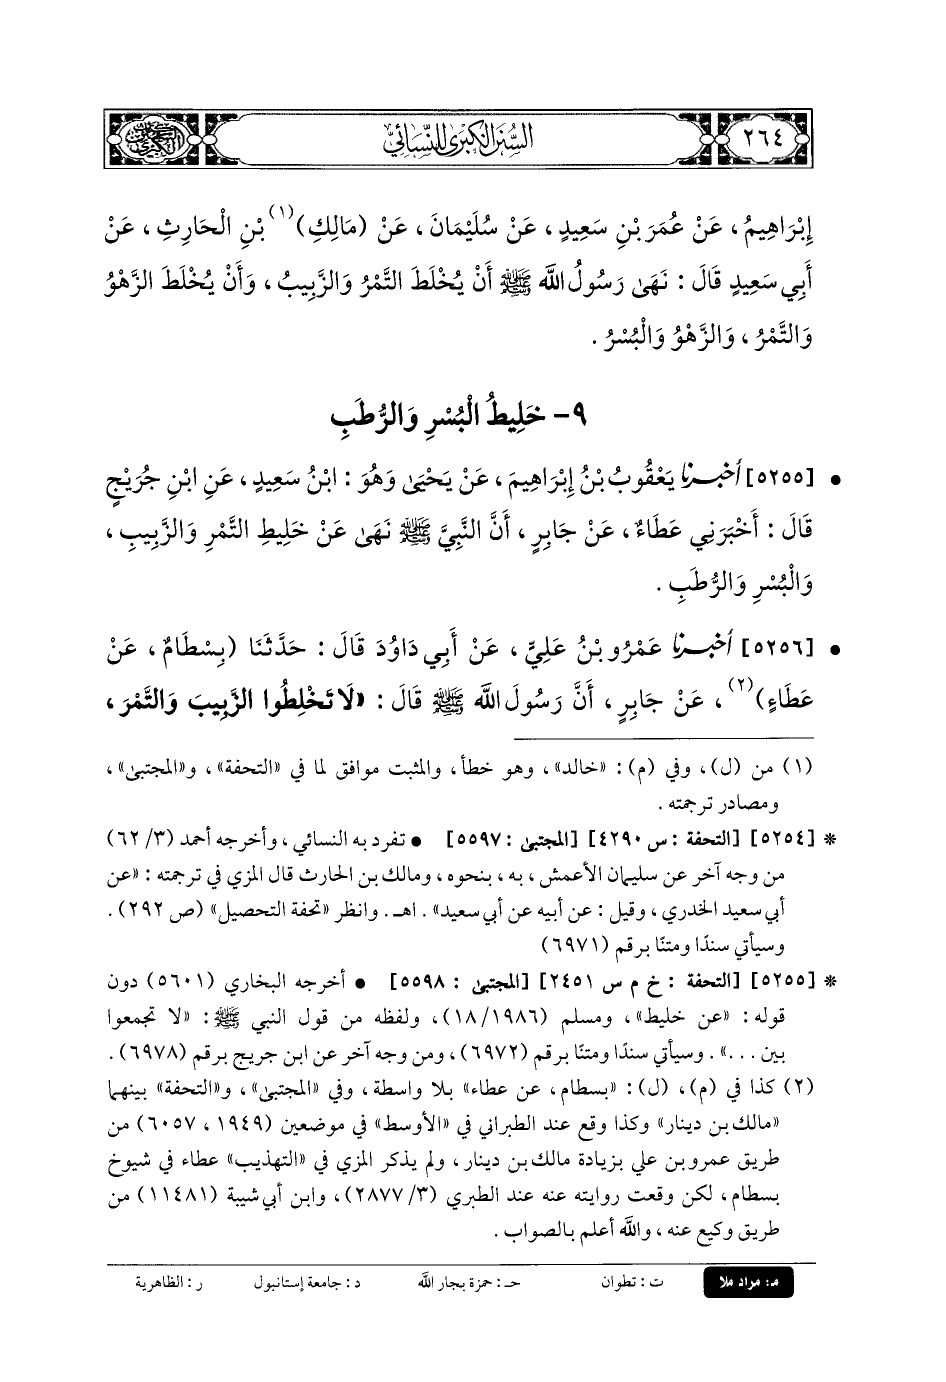 ٢٦٤
السنن الكبرى للنسائي
إِبْرَاهِيمُ، عَنْ عُمَرَ بْنِ سَعِيدٍ، عَنْ سُلَيْمَانَ، عَنْ (مَالِكِ)(١) بْنِ الْحَارِثِ، عَنْ
أَبِي سَعِيدٍ قَالَ: نَهَىٰ رَسُولُ اللَّه ﷺ أَنْ يُخْلَطَ التَّمْرُ وَالزَّبِيبُ، وَأَنْ يُخْلَطَ الزَّهْوُ
وَالتَّمْرُ، وَالزَّهْوُ وَالْبُسْرُ.
٩- خَلِيطُ الْبُسْرِ وَالرُّطَبِ
• [٥٢٥٥] أَخْبَرَنَا يَعْقُوبُ بْنُ إِبْرَاهِيمَ، عَنْ يَحْيَىٰ وَهُوَ: ابْنُ سَعِيدٍ، عَنِ ابْنِ جُرَيْجٍ
قَالَ: أَخْبَرَنِي عَطَاءٌ، عَنْ جَابِرٍ، أَنَّ النَّبِيَّ ﷺ نَهَىٰ عَنْ خَلِيطِ التَّمْرِ وَالزَّبِيبِ،
وَالْبُسْرِ وَالرُّطَبِ.
• [٥٢٥٦] أَخْبَرَنَا عَمْرُو بْنُ عَلِيٍّ، عَنْ أَبِي دَاوُدَ قَالَ: حَدَّثَنَا (بِسْطَامٌ، عَنْ
عَطَاءٍ)(٢)، عَنْ جَابِرٍ، أَنَّ رَسُولَ اللَّه ﷺ قَالَ: «لَا تَخْلِطُوا الزَّبِيبَ وَالتَّمْرَ،
(١) من (ل)، وفي (م): «خالد»، وهو خطأ، والمثبت موافق لما في «التحفة»، و«المجتبىٰ»،
ومصادر ترجمته.
* [٥٢٥٤] [التحفة: س ٤٢٩٠] [المجتبىٰ: ٥٥٩٧] • تفرد به النسائي، وأخرجه أحمد (٣/ ٦٢)
من وجه آخر عن سليمان الأعمش، به، بنحوه، ومالك بن الحارث قال المزي في ترجمته: «عن
أبي سعيد الخدري، وقيل: عن أبيه عن أبي سعيد». اهـ. وانظر «تحفة التحصيل» (ص ٢٩٢).
وسيأتي سندًا ومتنًا برقم (٦٩٧١)
* [٥٢٥٥] [التحفة: خ م س ٢٤٥١] [المجتبىٰ: ٥٥٩٨] • أخرجه البخاري (٥٦٠١) دون
قوله: «عن خليط»، ومسلم (١٨/١٩٨٦)، ولفظه من قول النبي ﷺ: «لا تجمعوا
بين ...». وسيأتي سندًا ومتنًا برقم (٦٩٧٢)، ومن وجه آخر عن ابن جريج برقم (٦٩٧٨).
(٢) كذا في (م)، (ل): «بسطام، عن عطاء» بلا واسطة، وفي «المجتبىٰ»، و«التحفة» بينهما
«مالك بن دينار» وكذا وقع عند الطبراني في «الأوسط» في موضعين (١٩٤٩، ٦٠٥٧) من
طريق عمرو بن علي بزيادة مالك بن دينار، ولم يذكر المزي في «التهذيب» عطاء في شيوخ
بسطام، لكن وقعت روايته عنه عند الطبري (٣/ ٢٨٧٧)، وابن أبي شيبة (١١٤٨١) من
طريق وكيع عنه، واللَّه أعلم بالصواب.
مـ: مراد ملا ت: تطوان حـ: حمزة بجار اللَّه د: جامعة إستانبول ر: الظاهرية